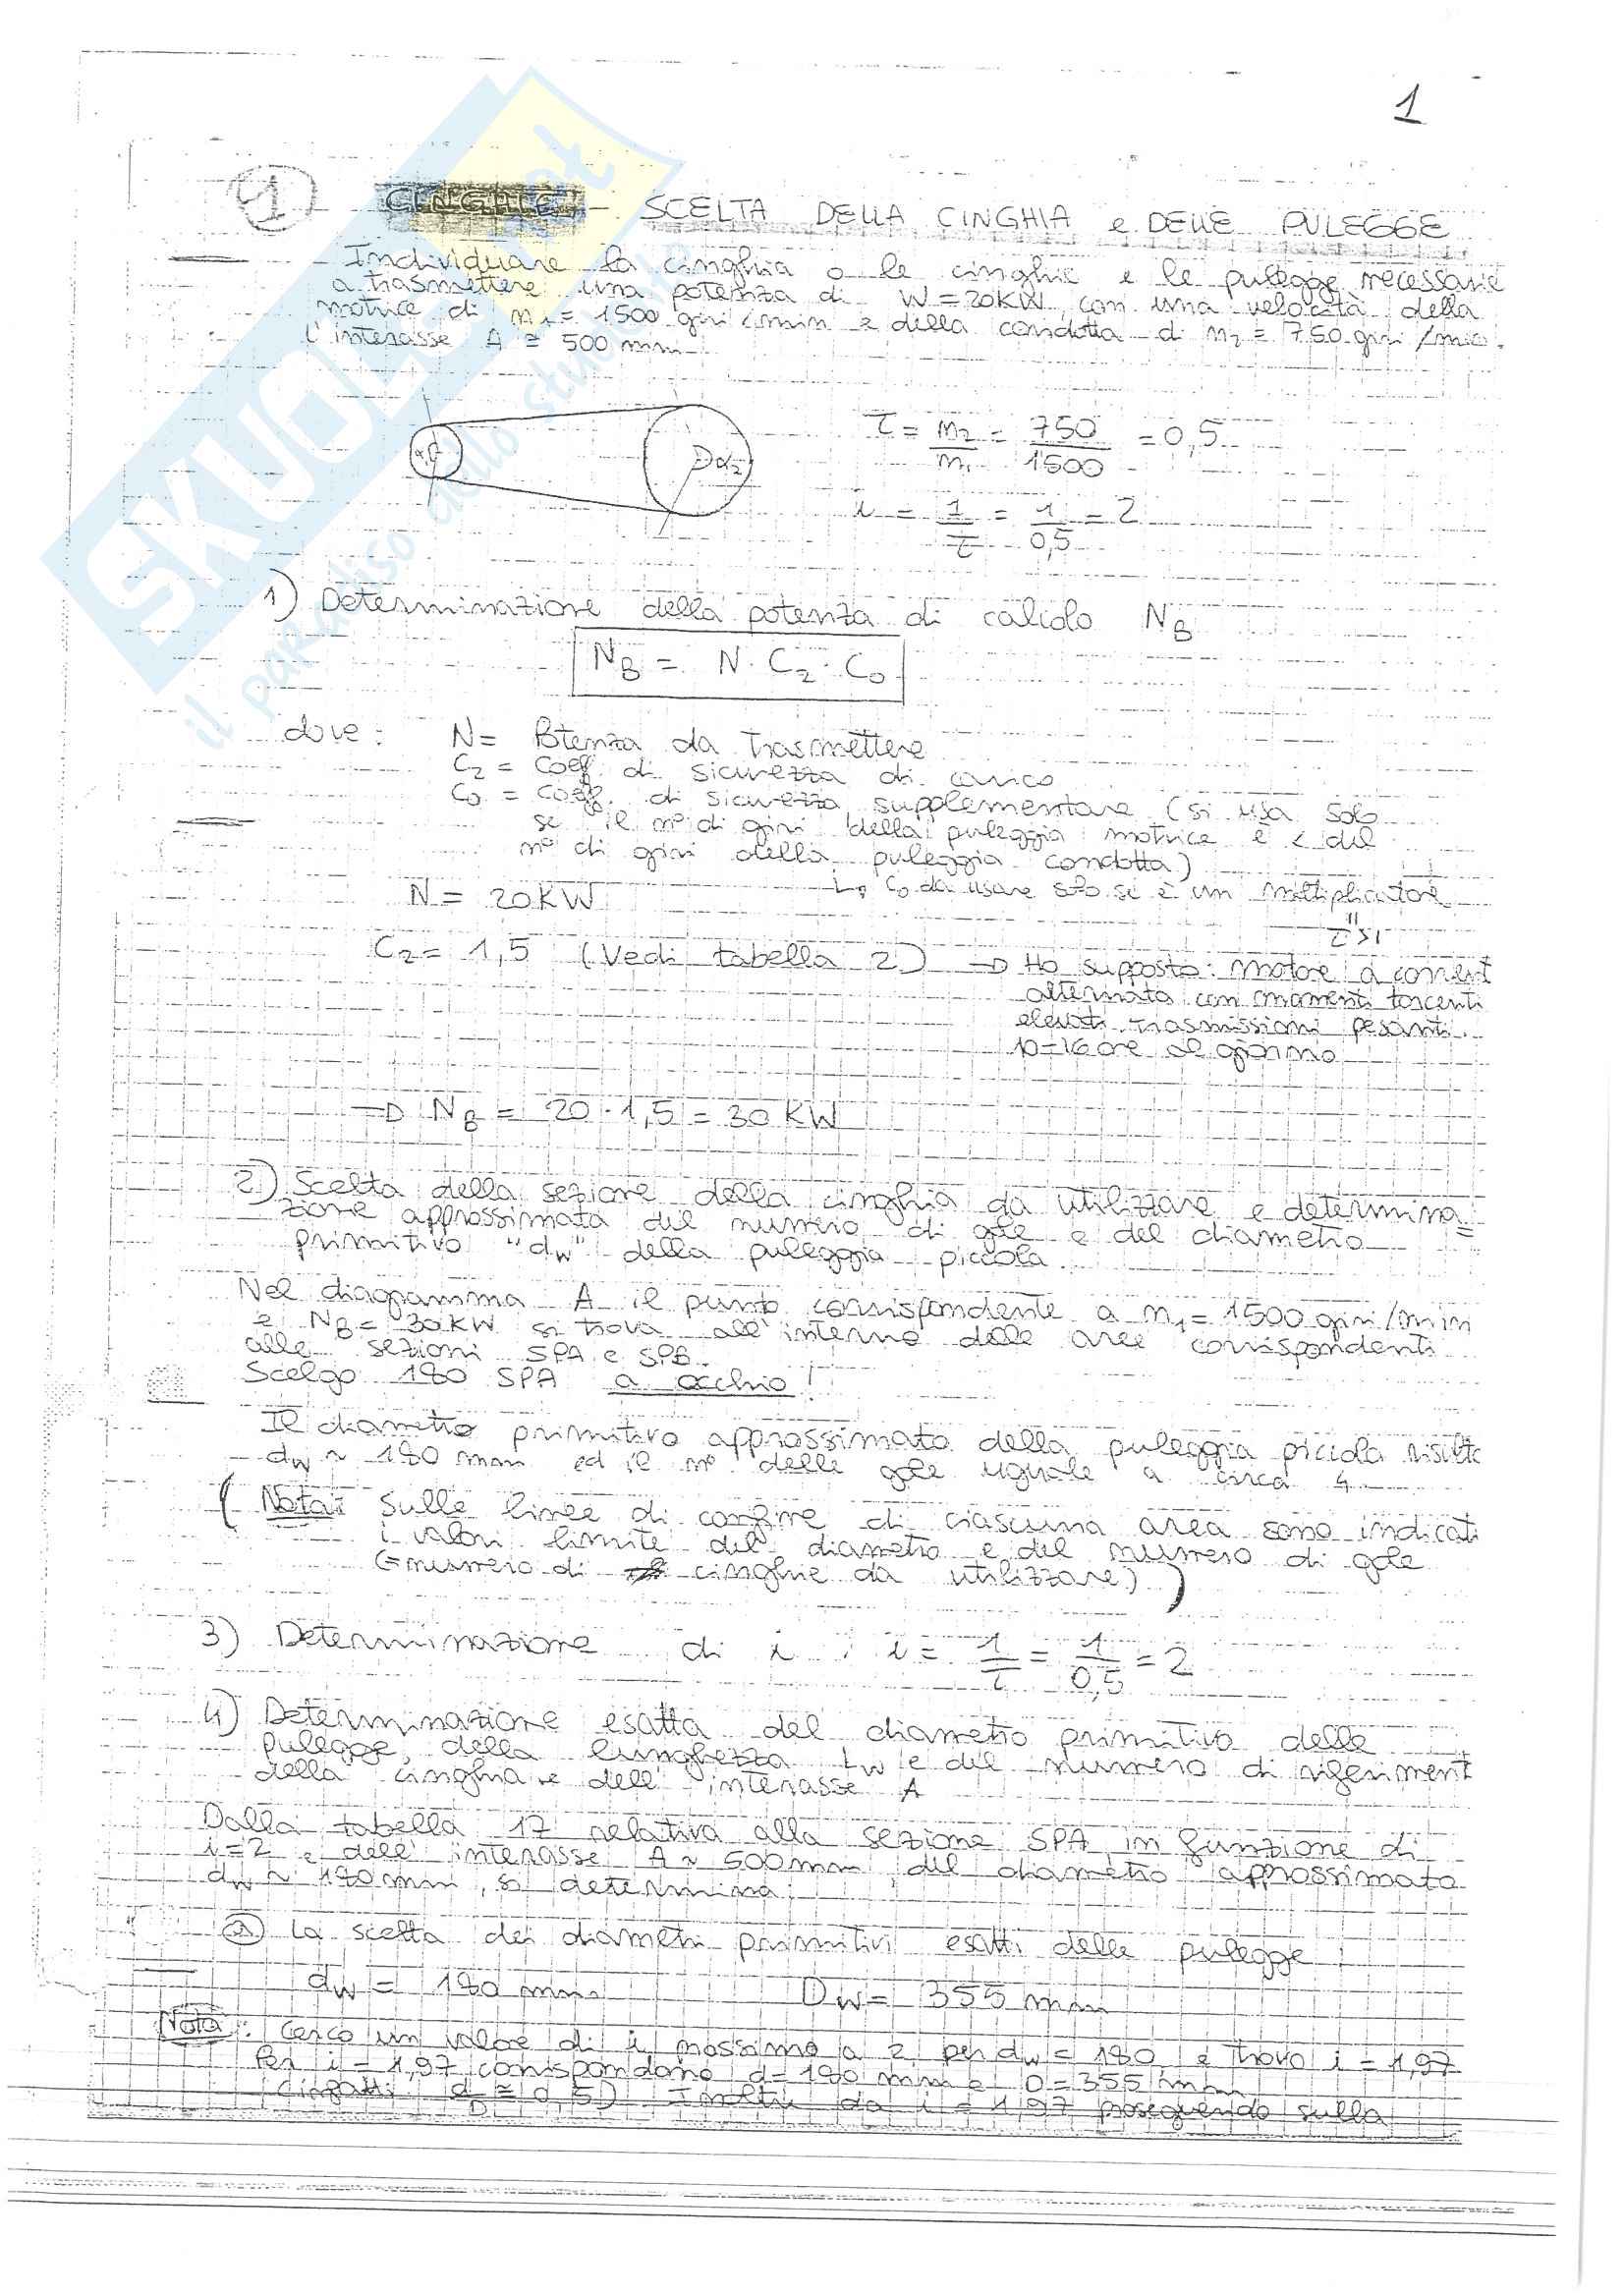 1
1 CINGHIE - SCELTA DELLA CINGHIA e DELLE PULEGGE
Individuare la cinghia o le cinghie e le pulegge necessarie
a trasmettere una potenza di W = 20KW, con una velocità della
motrice di n1 = 1500 giri/min e della condotta di n2 = 750 giri/min.
l'interasse A ≅ 500 mm
τ = n2/n1 = 750/1500 = 0,5
i = 1/τ = 1/0,5 = 2
1) Determinazione della potenza di calcolo NB
NB = N · C2 · C0
dove: N = Potenza da trasmettere
C2 = coeff. di sicurezza di carico
C0 = coeff. di sicurezza supplementare (si usa solo
se il n° di giri della puleggia motrice è < del
n° di giri della puleggia condotta)
C0 da usare solo se è un moltiplicatore
τ>1
N = 20KW
C2 = 1,5 (Vedi tabella 2) → Ho supposto: motore a corrent
alternata con momenti torcenti
elevati. Trasmissioni pesanti.
10-16 ore al giorno
→ NB = 20 · 1,5 = 30 KW
2) Scelta della sezione della cinghia da utilizzare e determina=
zione approssimata del numero di gole e del diametro
primitivo "dw" della puleggia piccola.
Nel diagramma A il punto corrispondente a n1 = 1500 giri/min
e NB = 30KW si trova all'interno delle aree corrispondenti
alle sezioni SPA e SPB.
Scelgo 180 SPA a occhio!
Il diametro primitivo approssimato della puleggia piccola risulta
dw ~ 180 mm ed il n° delle gole uguale a circa 4
(Nota: Sulle linee di confine di ciascuna area sono indicati
i valori limite del diametro e del numero di gole
(=numero di cinghie da utilizzare))
3) Determinazione di i : i = 1/τ = 1/0,5 = 2
4) Determinazione esatta del diametro primitivo delle
pulegge, della lunghezza Lw e del numero di riferiment
della cinghia e dell'interasse A
Dalla tabella 17 relativa alla sezione SPA, in funzione di
i=2 e dell'interasse A ~ 500mm del diametro approssimato
dw ~ 180mm, si determina:
a) la scelta dei diametri primitivi esatti delle pulegge
dw = 180 mm Dw = 355 mm
Nota: Cerco un valore di i prossimo a 2 per dw = 180 e trovo i = 1,97
Per i = 1,97 corrispondono d = 180 mm e D = 355 mm
(infatti d/D ≅ 0,5) Inoltre da i = 1,97 proseguendo sulla
SKUOLA.net
il paradiso dello studente